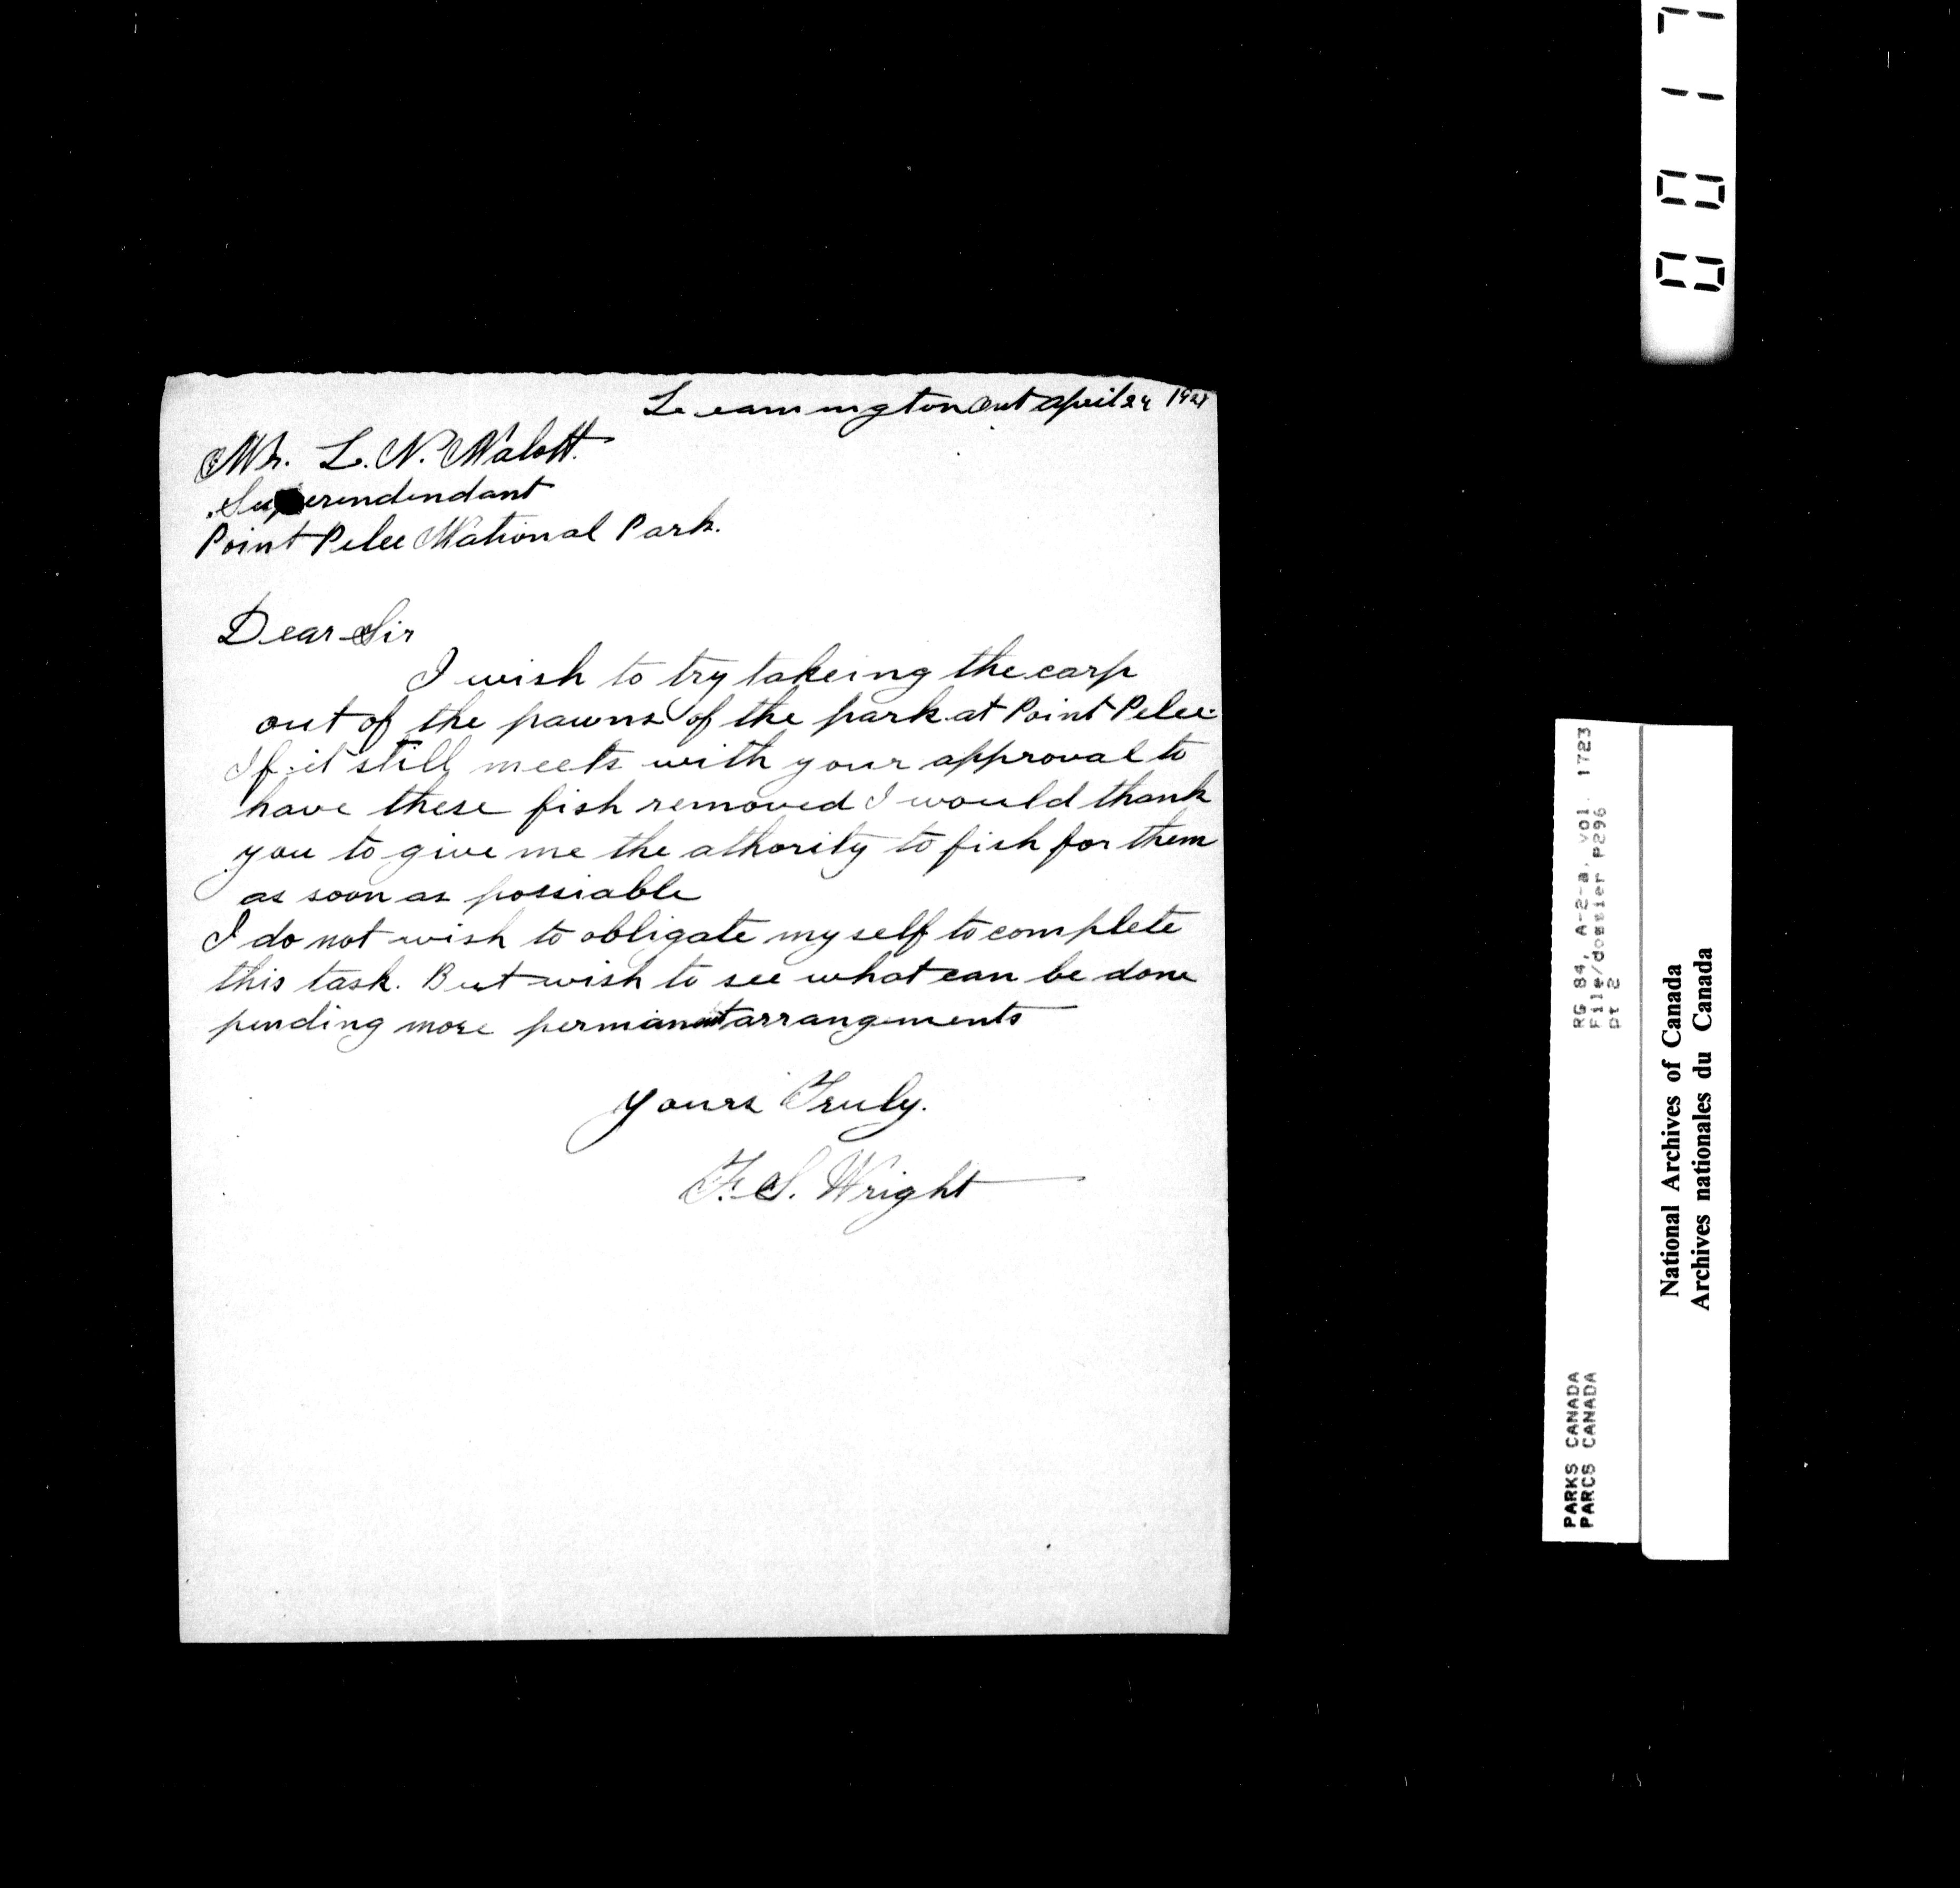 Leamington Ont April 24 1927
Mr. L. N. Malott.
Superendendant
Point Pelee National Park.
Dear Sir
I wish to try takeing the carp
out of the pawns of the park at Point Pelee.
If it still meets with your approval to
have these fish removed I would thank
you to give me the athority to fish for them
as soon as possiable
I do not wish to obligate myself to complete
this task. But wish to see what can be done
pending more permanent arrangements
Yours Truly.
F. S. Wright
PARKS CANADA RG 84, A-2-a, vol. 1723
PARCS CANADA File/dossier P296
pt 2
National Archives of Canada
Archives nationales du Canada